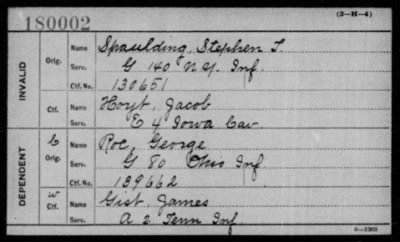 180002
(3-H-4)
INVALID
Orig. Name Spaulding, Stephen T.
Serv. G 140 N.Y. Inf.
Ctf. No. 130651
Ctf. Name Hoyt, Jacob
Serv. E 4 Iowa Cav.
DEPENDENT
C Orig. Name Roe, George
Serv. G 80 Ohio Inf.
Ctf. No. 139662
W Ctf. Name Gist, James
Serv. A 2 Tenn Inf.